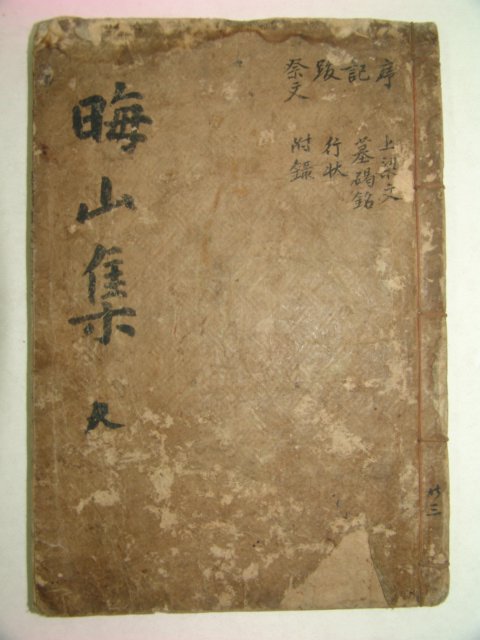 晦山集
人
序
記
跋
祭文
上梁文
墓碣銘
行状
附錄
共三